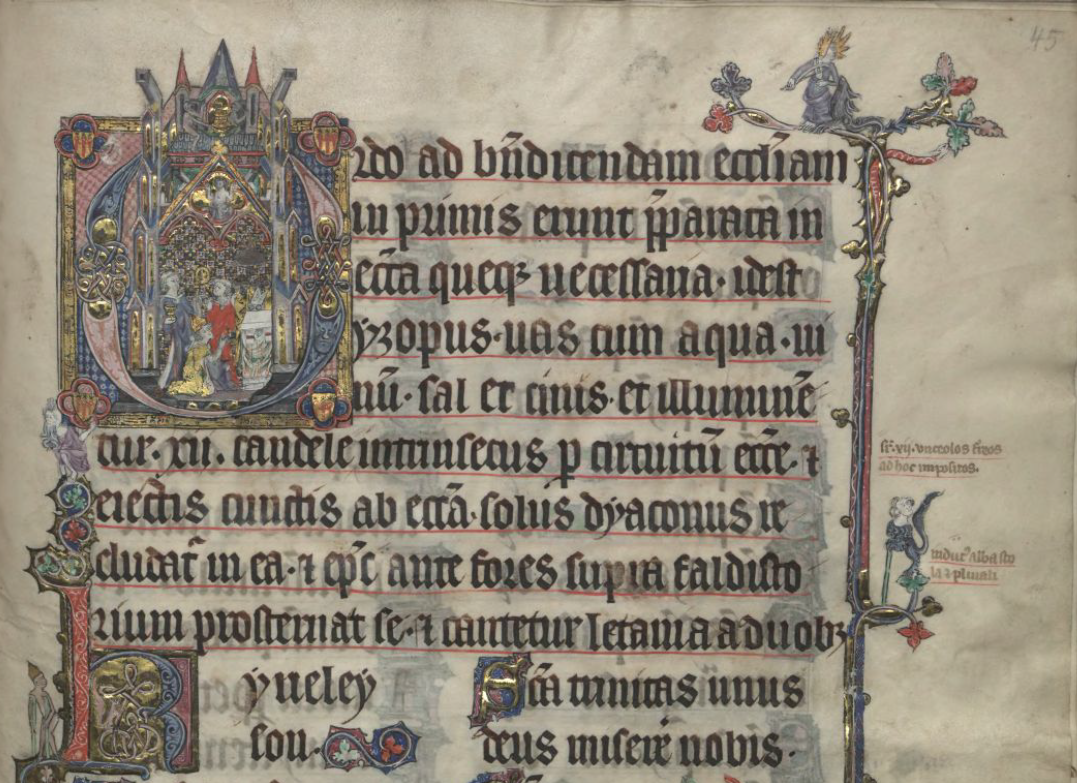 45
Ordo ad bn̄dicendam eccl̄iam
in primis erunt p̄parata in
ecc̄a queq; necessaria· idest
yzopus· uas cum aqua· ui
nū· sal et cinis· et illuminē
tur· xii· candele intrinsecus p circuitū ecc̄e· ⁊
eiectis cunctis ab ecc̄a· solus dyaconus re
cludat᷑ in ea· ⁊ ep̄c ante fores supra faldisto
rium prosternat se· ⁊ cantetur letania a duob;
Kyrieley
son·
Sc̄a trinitas unus
deus miserē nobis·
sr̄· xij· unceolos freos
ad hoc impositos·
induc᷑ alba sto
la ⁊ pluuiali